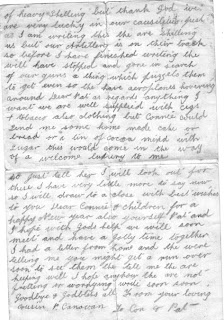 of heavy shelling but thank God we
are very lucky in our casualties just
as I am writing this the are shelling
us but our artillery is on their track
so before I have finished writing they
will have stopped and gone in search
of our guns a thing which puzzles them
to get even so the have aeroplanes hovering
around. Dear Pat as regards anything I
want we are well supplied with Cigs
& tobacco also clothing but Connie could
send me some home made cake or
bread or a tin of cocoa mixed with
sugar this would come in the way
of a welcome luxury to me
so just tell her I will look out for
this I have very little more to say now
so I will draw to a close with best wishes
to you Dear Connie & Children for a
happy New year also yourself Pat and
I hope with God help we will soon
meet and have a jolly time together
I had a letter from home and the were
telling me you might get a run over
soon to see them the tell me the are
keeping well I hope you are not
fretting or worrying will soon
Goodbye & God bless all From your loving
Cousin P Donovan To Con & Pat